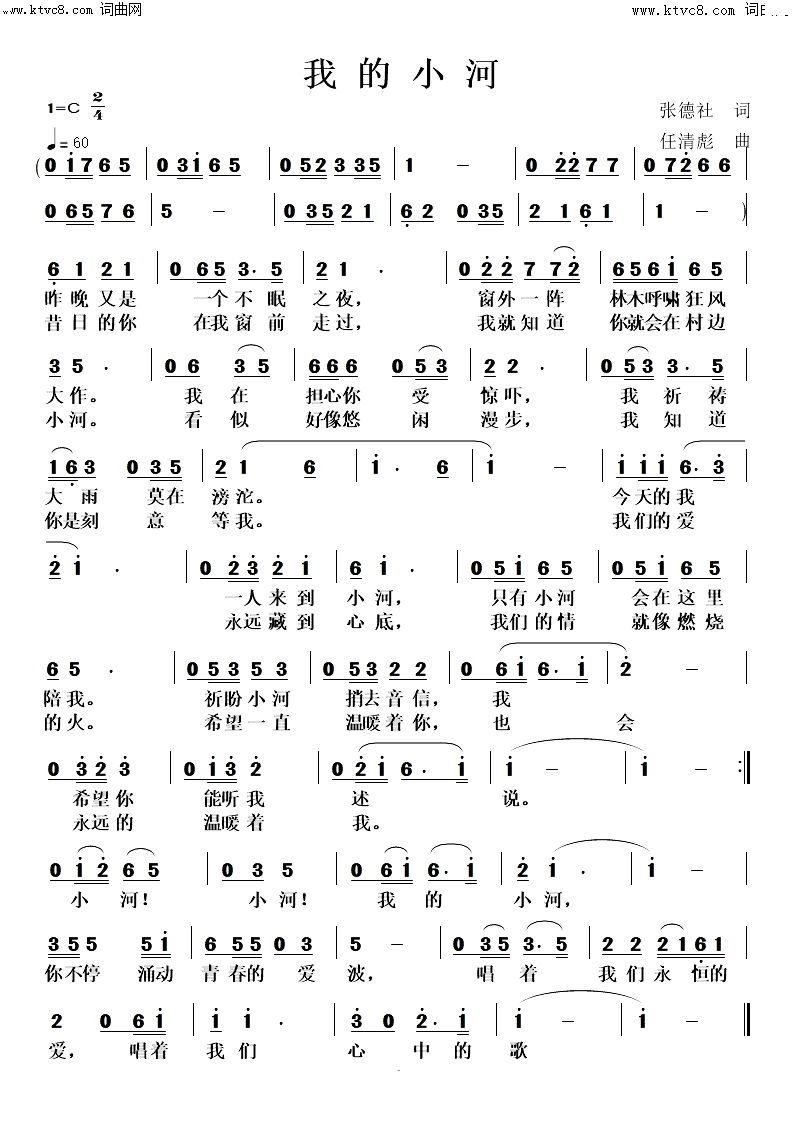 www.ktvc8.com 词曲网
www.ktvc8.com 词曲
我的小河
1=C 2/4
张德社 词
♩=60
任清彪 曲
(0 i 7 6 5 | 0 3 i 6 5 | 0 5 2 3 3 5 | 1 – | 0 2 2 7 7 | 0 7 2 6 6 |
0 6 5 7 6 | 5 – | 0 3 5 2 1 | 6 2 0 3 5 | 2 1 6 1 | 1 – )|
6 1 2 1 | 0 6 5 3. 5 | 2 1. | 0 2 2 7 7 2 | 6 5 6 i 6 5 |
昨晚又是 一个不眠 之夜, 窗外一阵 林木呼啸狂风
昔日的你 在我窗前 走过, 我就知道 你就会在村边
3 5. | 0 6 3 5 | 6 6 6 0 5 3 | 2 2. | 0 5 3 3. 5 |
大作。 我在 担心你 受 惊吓, 我祈祷
小河。 看似 好像悠 闲 漫步, 我知道
1 6 3 0 3 5 | 2 1 6 | i. 6 | i – | i i i 6. 3 |
大雨 莫在 滂沱。 今天的我
你是刻 意 等我。 我们的爱
2 i. | 0 2 3 2 i | 6 i. | 0 5 i 6 5 | 0 5 i 6 5 |
一人来到 小河, 只有小河 会在这里
永远藏到 心底, 我们的情 就像燃烧
6 5. | 0 5 3 5 3 | 0 5 3 2 2 | 0 6 i 6. i | 2 – |
陪我。 祈盼小河 捎去音信, 我
的火。 希望一直 温暖着你, 也 会
0 3 2 3 | 0 i 3 2 | 0 2 i 6. i | i – | i – :|
希望你 能听我 述 说。
永远的 温暖着 我。
0 i 2 6 5 | 0 3 5 | 0 6 i 6. i | 2 i. | i – |
小河! 小河! 我的 小河,
3 5 5 5 i | 6 5 5 0 3 | 5 – | 0 3 5 3. 5 | 2 2 2 1 6 1 |
你不停 涌动 青春的 爱 波, 唱着 我们永恒的
2 0 6 i | i i. | 3 0 2. i | i – | i – |
爱, 唱着 我们 心 中的 歌